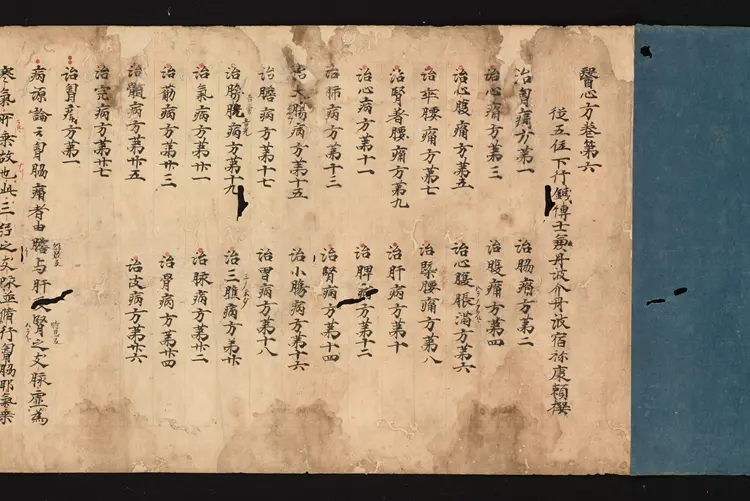 醫心方卷第六
從五位下行鍼博士兼丹波介丹波宿祢康頼撰
治胷痛方第一 治脇痛方第二
治心痛方第三 治腹痛方第四
治心腹痛方第五 治心腹脹滿方第六
治卒腰痛方第七 治腰痛方第八
治腎著腰痛方第九 治肝病方第十
治心病方第十一 治脾病方第十二
治肺病方第十三 治腎病方第十四
治大腸病方第十五 治小腸病方第十六
治膽病方第十七 治胃病方第十八
治膀胱病方第十九 治三膲病方第廿
治氣病方第廿一 治脉病方第廿二
治筋病方第廿三 治骨病方第廿四
治髓病方第廿五 治皮病方第廿六
治完病方第廿七
治胷痛方第一
病源論云胷脇痛者由膽与肝及腎之支脉虛為
寒氣所乗故也此三經之支脉並循行胷脇邪氣乗